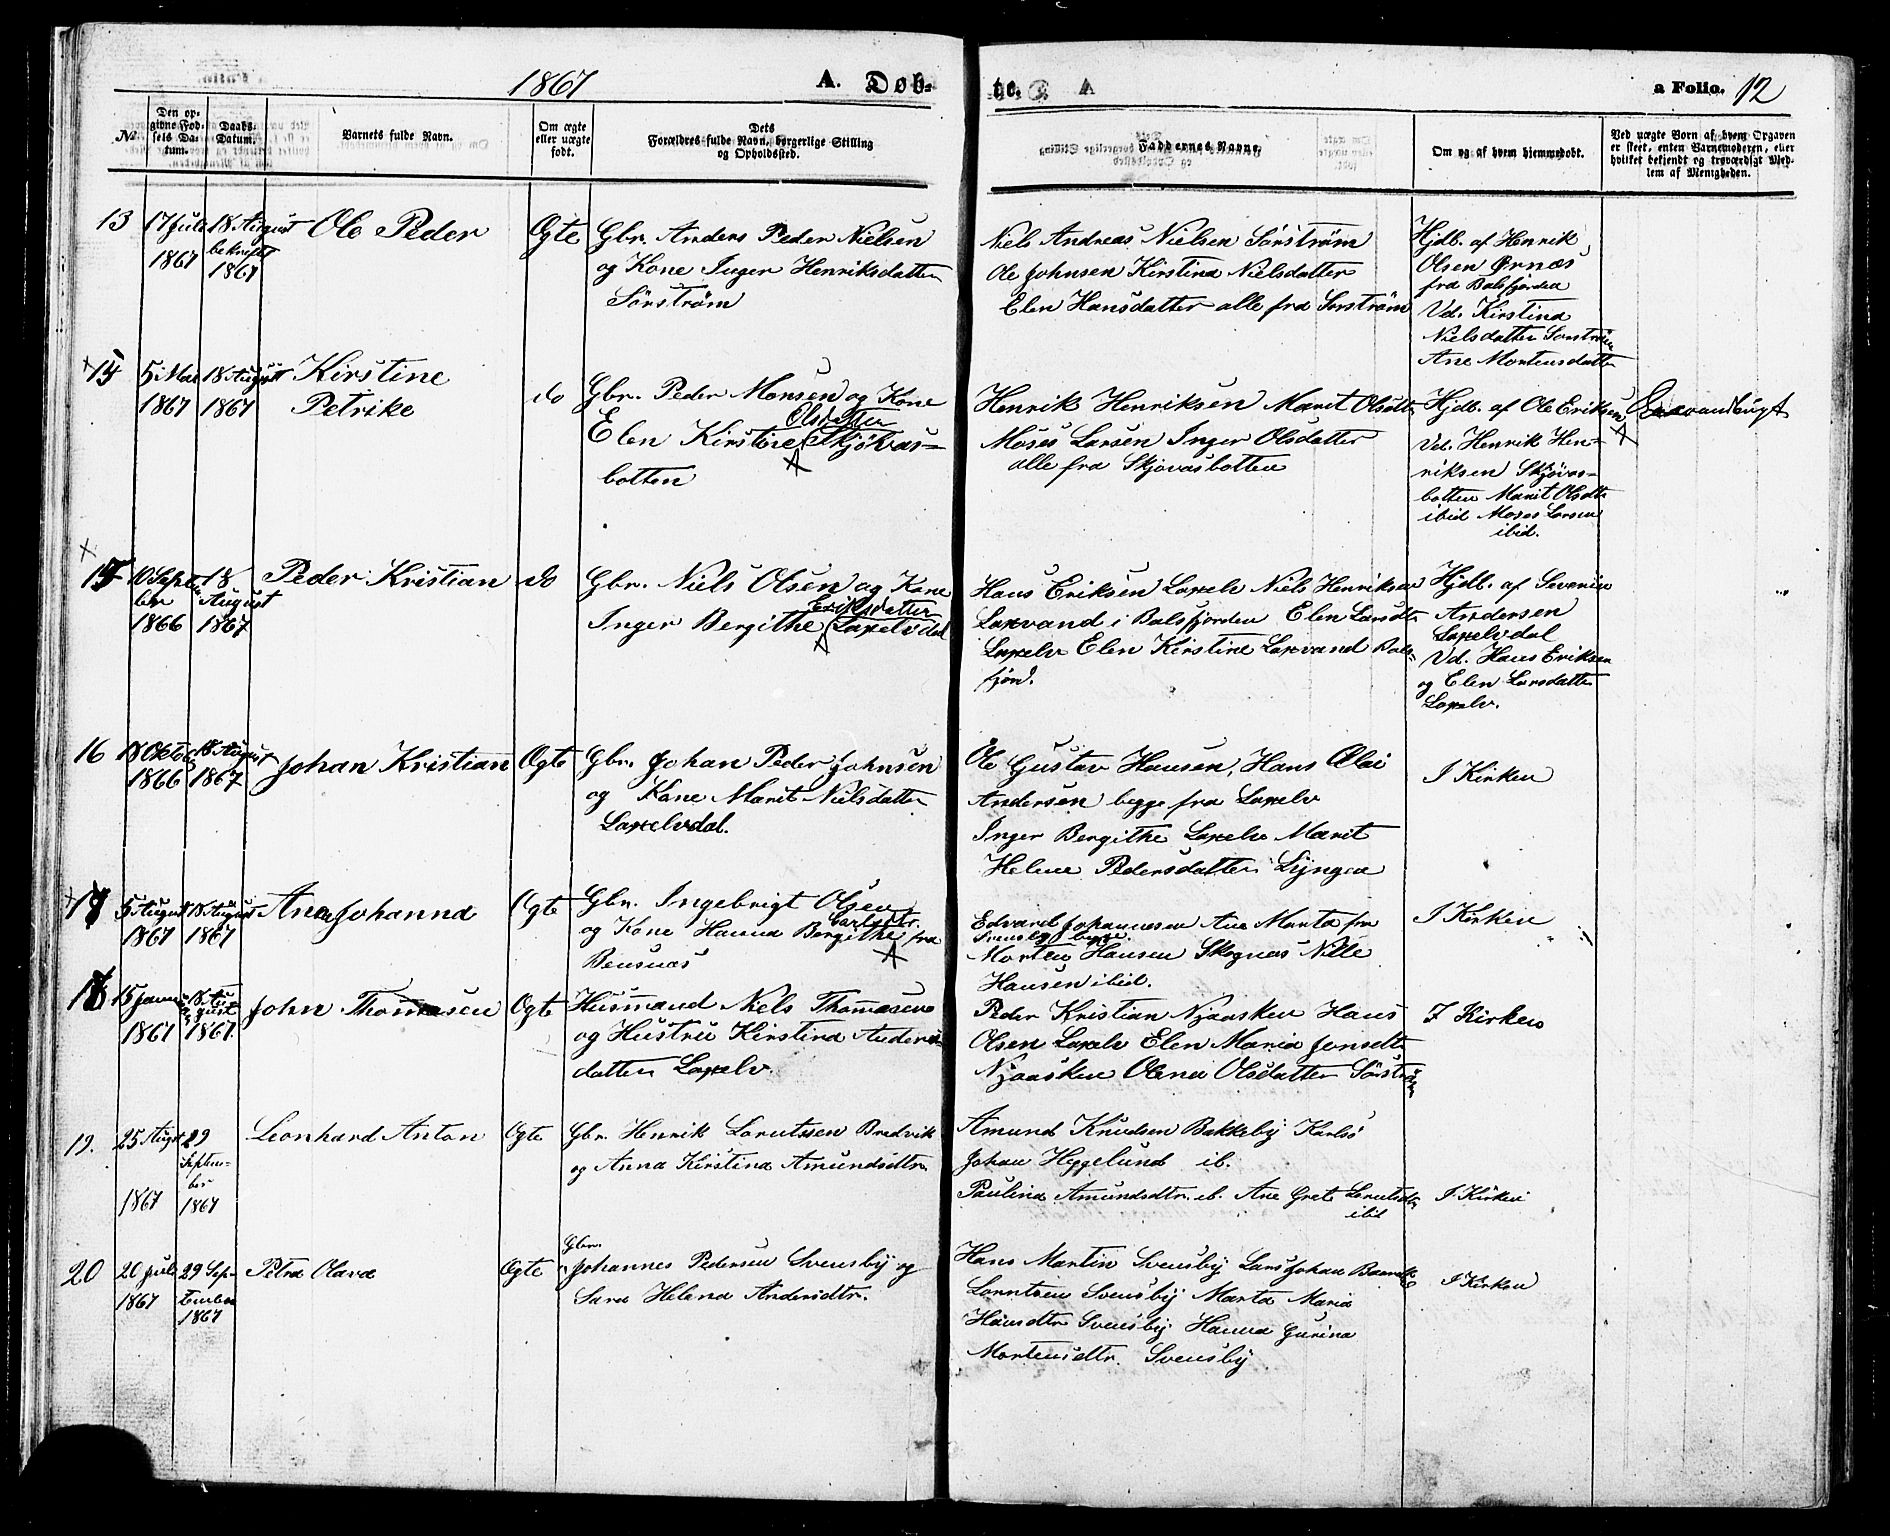 1867 A. Døb-
te. a Folio. 12
No.
Den op-
givne Fød-
sels Da-
tum.
Daabs-
Datum.
Barnets fulde Navn.
Om ægte
eller uægte
født.
Dets
Forældres fulde Navn, borgerlige Stilling
og Opholdssted.
Faddernes Navne.
Om og af hvem hjemmedøbt.
Ved uægte Børn af hvem Opgaven
er skeet, enten Barnemoderen, eller
hvilket bekjendt og troværdigt Med-
lem af Menigheden.
13
17 Juli
1867
18 August
bekræftet
1867
Ole Peder
Ogte
Gbr. Anders Peder Nielsen
og Kone Inger Henriksdatter
Sörström
Niels Andreas Nielsen Sörström
Ole Johnsen Kirstina Nielsdatter
Elen Hansdatter alle fra Sörström
Hjdb. af Henrik
Olsen Ørnæs
fra Balsfjorden
Vd. Kirstina
Nielsdatter Sorström
Ane Mortensdatter
5 Mai
1867
18 August
1867
Kirstine
Petrike
do
Gbr. Peder Monsen og Kone
Olsdatter
Elen Kirstine Skjövas-
botten
Henrik Henriksen Marit Olsdtr
Moses Larsen Inger Olsdatter
alle fra Skjövasbotten
Hjdb. af Ole Eriksen
Vd. Henrik Hen-
riksen Skjövas-
botten Marit Olsdtr
ibid Moses Larsen
ibid.
15
10 Septem
ber
1866
18
August
1867
Peder Kristian
do
Gbr. Niels Olsen og Kone
Eriksdatter
Inger Bergithe Laxelvdal
Hans Eriksen Laxelv Niels Henriksen
Laxvand i Balsfjorden Elen Larsdtr
Laxelv Elen Kirstine Laxvand Bals-
fjord.
Hjdb. af Severin
Andersen
Laxelvdal
Vd. Hans Eriksen
og Elen Larsdatter
Laxelv.
16
18 Oktober
1866
18 August
1867
Johan Kristian
Ogte
Gbr. Johan Peder Johnsen
og Kone Marit Nielsdatter
Laxelvdal.
Ole Gustav Hansen, Hans Olai
Andersen begge fra Laxelv
Inger Bergithe Laxelv Marit
Helene Pedersdatter Lyngen
I Kirken
17
5 August
1867
18 August
1867
Ane Johanna
Ogte
Gbr. Ingebrigt Olsen
Carlsdtr.
og Kone Hanna Bergithe fra
Bensnæs
Edvard Johannesen Ane Marta fra
Svensby begge.
Morten Hansen Skognæs Nille
Hansen ibid.
I Kirken
18
15 Januar
1867
18 Au-
gust
1867
John Thomasen
Ogte
Husmand Niels Thomasen
og Hustru Kirstina Anders-
datter Laxelv.
Peder Kristian Njaasken Hans
Olsen Laxelv Elen Maria Jonsdtr
Njaasken Olena Olsdatter Sörström
I Kirken
19.
25 Aug
1867
29
Septem-
ber
1867
Leonhard Anton
Ogte
Gbr. Henrik Lorntssen Bredvik
og Anna Kirstina Amundsdtr.
Amund Knudsen Bakkeby Karlsö
Johan Heggelund ib.
Paulina Amundsdtr. ib. Ane Grete Lorntsdtr
ibid
I Kirken
20
20 Juli
1867
29 Sep-
tember
1867
Petra Olava
Ogte
Gbr.
Johannes Pedersen Svensby og
Sara Helena Andersdtr.
Hans Martin Svensby Lars Johan
Lorntsen Svensby Marta Maria
Hansdtr Svensby Hanna Gurina
Mortensdtr. Svensby
I Kirken